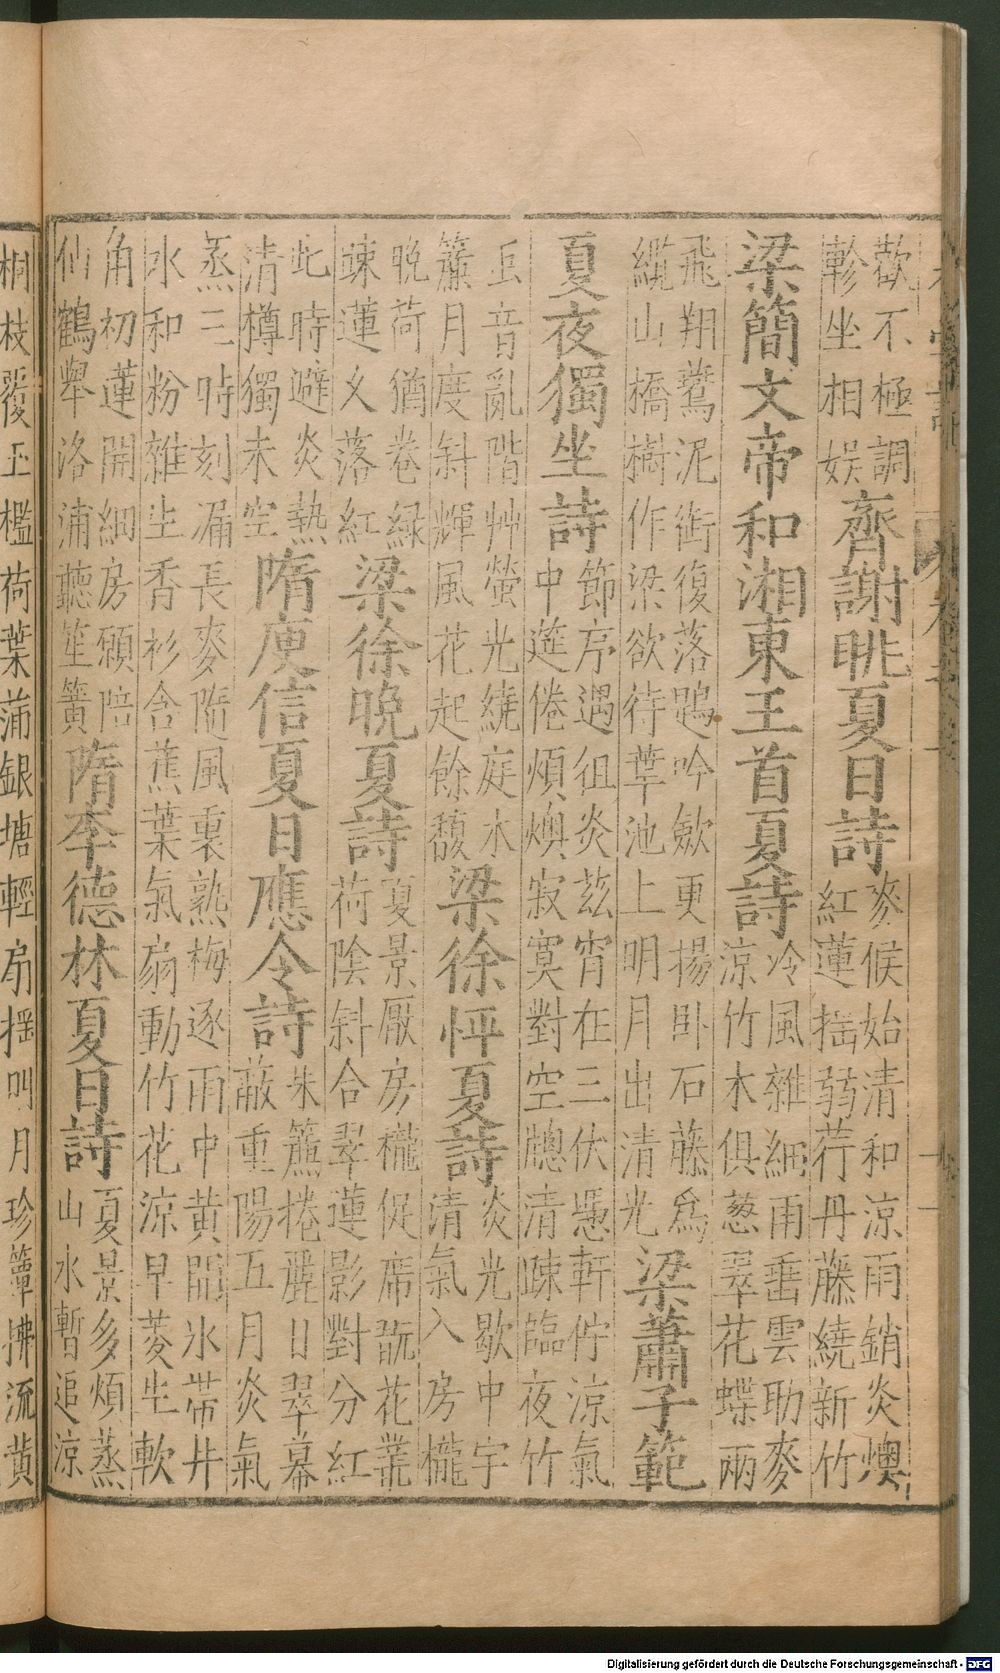 歡不極調
軫坐相娱
齊謝眺夏日詩
麥候始清和涼雨銷炎燠
紅蓮揺弱荇丹藤繞新竹
梁簡文帝和湘東王首夏詩
冷風雜細雨垂雲助麥
涼竹木俱葱翠花蝶兩
飛翔鷰泥銜復落鶗吟歛更揚卧石藤為
纜山橋樹作梁欲待華池上明月出清光
梁蕭子範
夏夜獨坐詩
節序遇徂炎茲宵在三伏慿軒佇涼氣
中筵倦煩燠寂寞對空牕清疎臨夜竹
虫音亂階艸螢光繞庭木
簾月度斜輝風花起餘馥
梁徐怦夏詩
炎光歇中宇
清氣入房櫳
晚荷猶卷緑
疎蓮乂落紅
梁徐晚夏詩
夏景厭房櫳促席翫花叢
荷陰斜合翠蓮影對分紅
此時避炎熱
清樽獨未空
隋庾信夏日應令詩
朱簾捲麗日翠幕
蔽重陽五月炎氣
蒸三時刻漏長麥隨風裏熟梅逐雨中黄開氷帶井
水和粉雜生香衫含蕉葉氣扇動竹花涼早菱生軟
角初蓮開細房願陪
仙鶴舉洛浦聽笙簧
隋李德林夏日詩
夏景多煩蒸
山水暫追涼
桐枝覆玉檻荷葉蒲銀塘輕扇揺叫月珍簟拂流黄
Digitalisierung gefördert durch die Deutsche Forschungsgemeinschaft - DFG